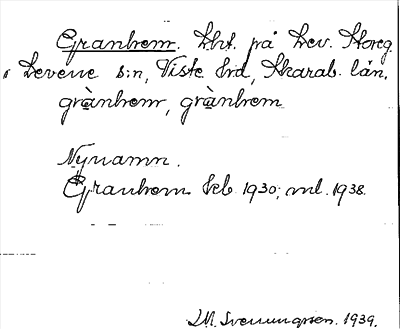 Granhem. Lht. på Lev. Storeg.
i Levene s:n, Viste hd, Skarab. län.
grànhem, grànhem
Nynamn.
Granhem kb. 1930; ml. 1938.
I.M. Svenungsson. 1939.